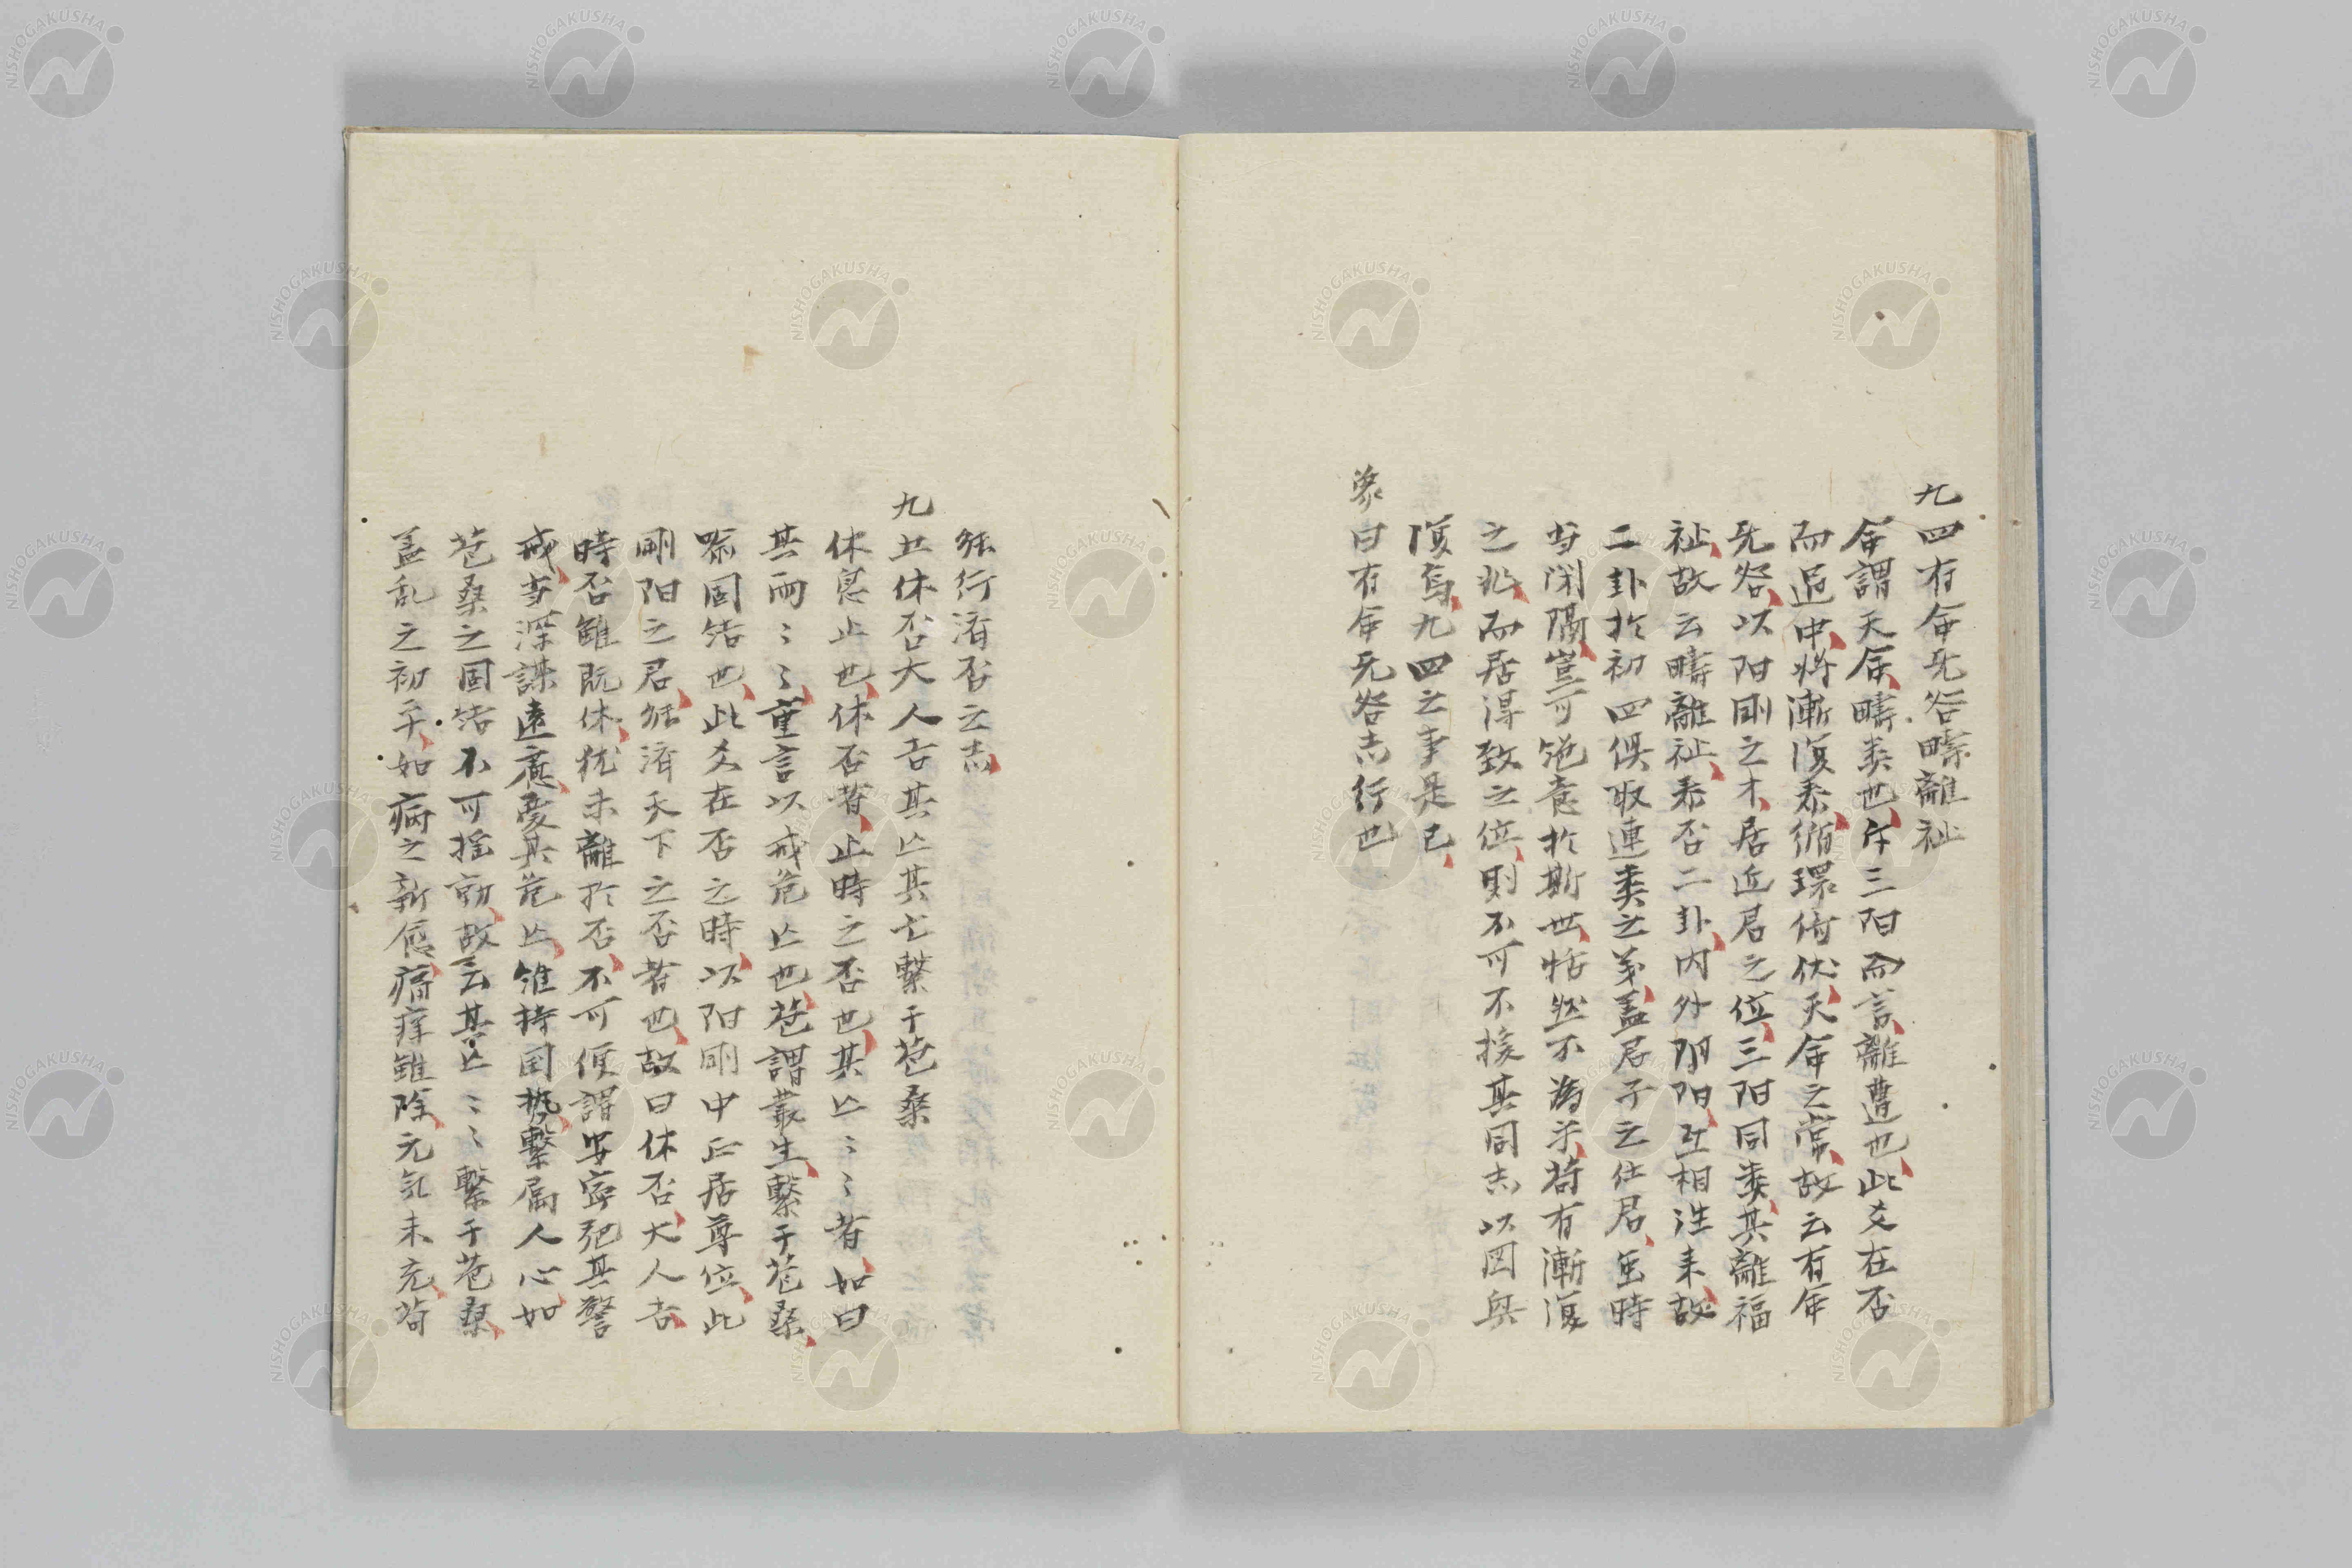 九四有命无咎疇離祉
命謂天命、疇類也、斥三阳而言、離遭也、此爻在否
而過中、将漸復泰、循環倚伏、天命之常、故云有命
无咎、以阳剛之才、居近君之位、三阳同类、其離福
祉、故云疇離祉、泰否二卦、内外阴阳、互相往来、故
二卦於初四俱取連类之義、盖君子之仕君、虽時
当閉隔、豈可絶意於斯世、恬然不為乎、苟有漸復
之兆、而居得致之位、則不可不援其同志以図興
復焉、九四之事是已、
象曰有命无咎志行也
能行済否之志、
九五休否大人吉其亾其亡繫于苞桑
休息止也、休否者、止時之否也、其亾〻〻者、如曰
其雨〻〻、重言以戒危亾也、苞謂叢生、繫于苞桑、
喩固結也、此爻在否之時、以阳剛中正居尊位、此
剛阳之君、能済天下之否者也、故曰休否、大人吉、
時否雖既休、犹未離於否、不可便謂安寧弛其警
戒、当深謀遠慮、憂其危亾、維持国势、繫属人心、如
苞桑之固結不可揺動、故云其亾〻〻繫于苞桑、
盖乱之初平、如病之新愈、痛痒雖除、元気未充、苟